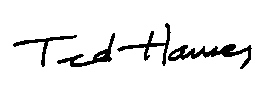 Ted Hawes